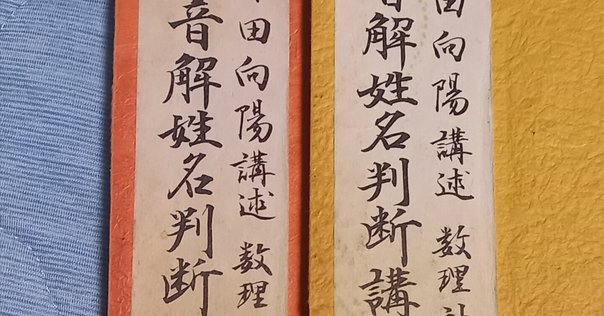 田向陽講述 数理
音解姓名判断講
田向陽講述 数理
音解姓名判断